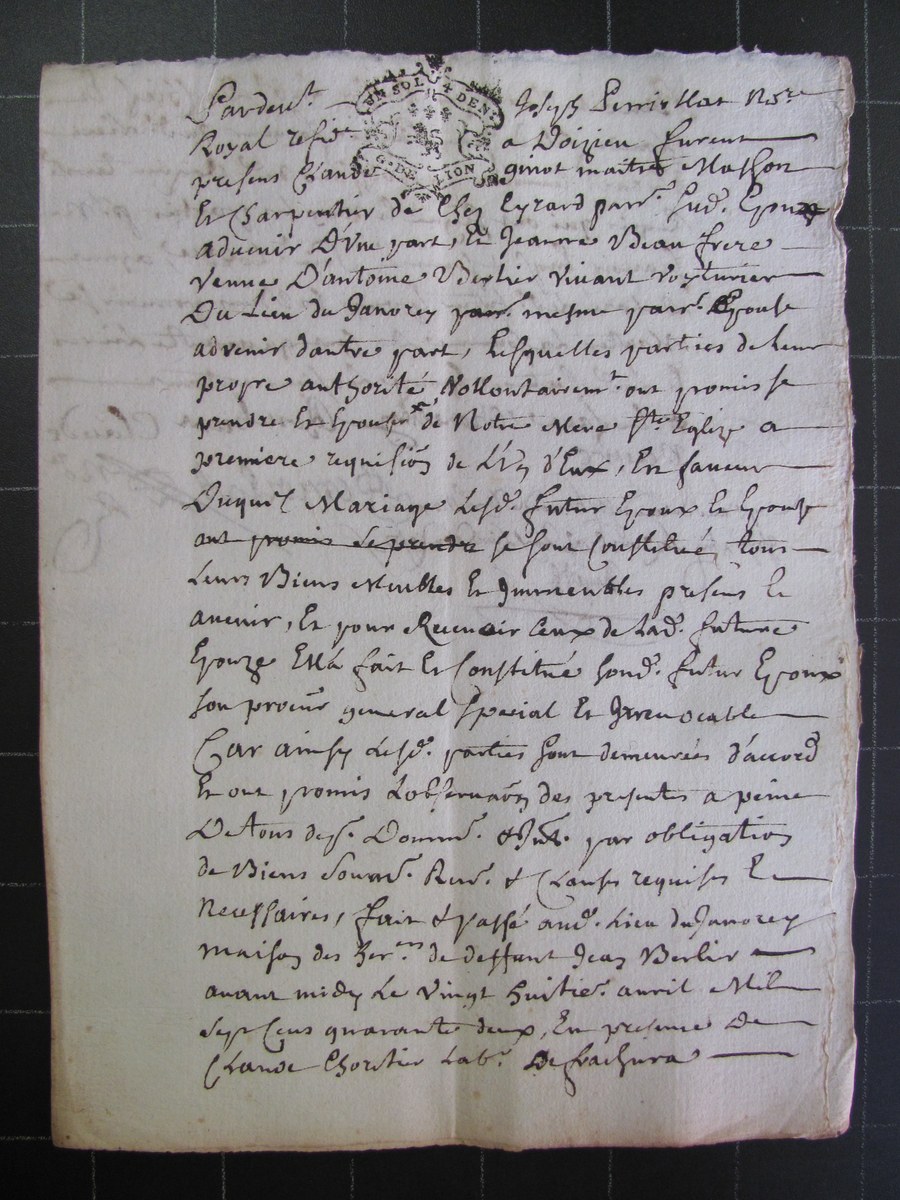 Pardevt. Joseph Perrichat Nore
Royal reside. a Doizieu furent
presens Claude ginot maitre Masson
Et Charpentier de Chez Eyrard parr. sud. Epoux
advenir D'Vne part, Et Jeanne Beau frere
veuue D'antoine Berlier Viuant voyturier
Du Lieu du Janorey parr. mesme parr. Epouse
advenir dautre part, Lesquelles parties de Leur
propre authorité Vollontairemt. ont promis se
prendre Et Epouser de Notre Mere Ste Eglize a
premiere requision de L'Vn d'Eux, En faueur
Duquel Mariage Lesd. futur Epoux Et Epouse
ont promis se prendre se sont Constitué tous
Leurs Biens Meubles Et Immeubles presens Et
auenir, Et pour Receuoir Ceux de Lad. future
Epouze Ella fait Et Constitué sond. futur Epoux
son procur general special Et Irreuocable
Car ainsy Lesd. parties sont demeurées d'accord
Et ont promis Lobseruaon des presentes a peine
De tous des. Domm. & Int. par obligation
de Biens Soum. Ren. & Clauses requises Et
Necessaires, fait & passé aud. Lieu du Janorey
maison des de deffunt Jean Berlier
auant midy Le Vingt huitie. auril Mil
sept Cens quarante deux, En presence De
Claude Choritier Lab. De Lachura
EN SOL 4 DEN.
G. DE LION